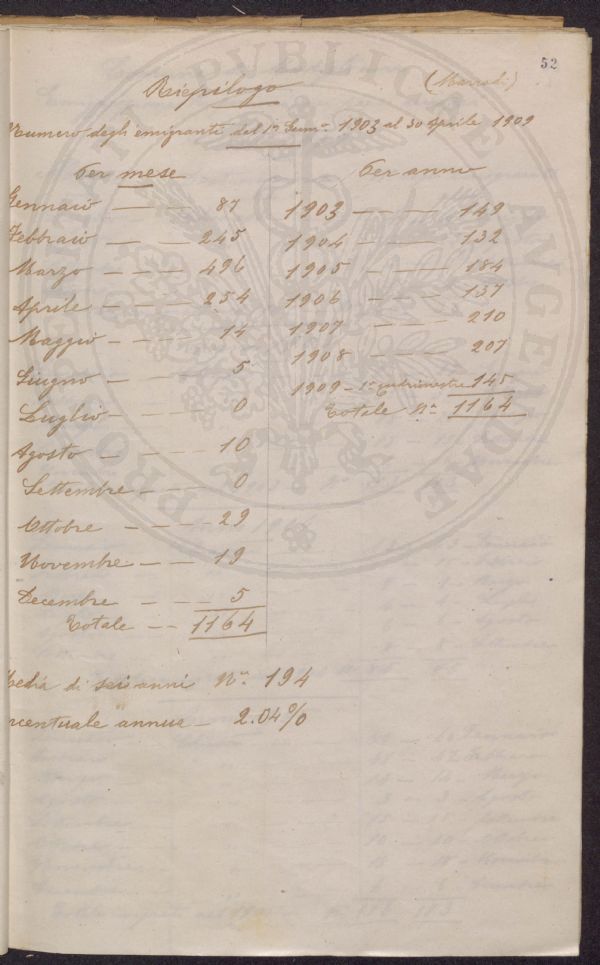 52
Riepilogo (Marradi)
Numero degli emigranti dal 1º Genn.º 1903 al 30 Aprile 1909
Per mese
Gennaio — — 87
Febbraio — — 245
Marzo — — — 496
Aprile — — — 254
Maggio — — — 14
Giugno — — — 5
Luglio — — — 0
Agosto — — — 10
Settembre — — 0
Ottobre — — — 29
Novembre — — 19
Decembre — — — 5
Totale — — 1164
Per anno
1903 — — — 149
1904 — — — 132
1905 — — — 184
1906 — — — 137
1907 — — — 210
1908 — — — 207
1909 – 1º quadrimestre 145
Totale Nº 1164
edia di sei anni Nº 194
rcentuale annua — 2.04%
PVBLICAE AVGENDAE